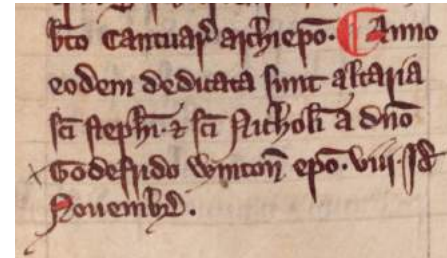 bt̄o Cantuar̄ archiepō. Anno
eodem dedicata sunt altaria
sc̄i steph̄i. ⁊ sc̄i Nicholai a dn̄o
Godefrido Wintoñ epō. viii. Id̄
Nouembr̄.